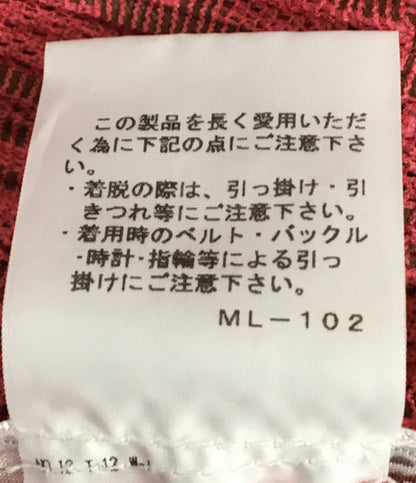 この製品を長く愛用いただ
く為に下記の点にご注意下さ
い。
・着脱の際は、引っ掛け・引
きつれ等にご注意下さい。
・着用時のベルト・バックル
・時計・指輪等による引っ
掛けにご注意下さい。
ML-102